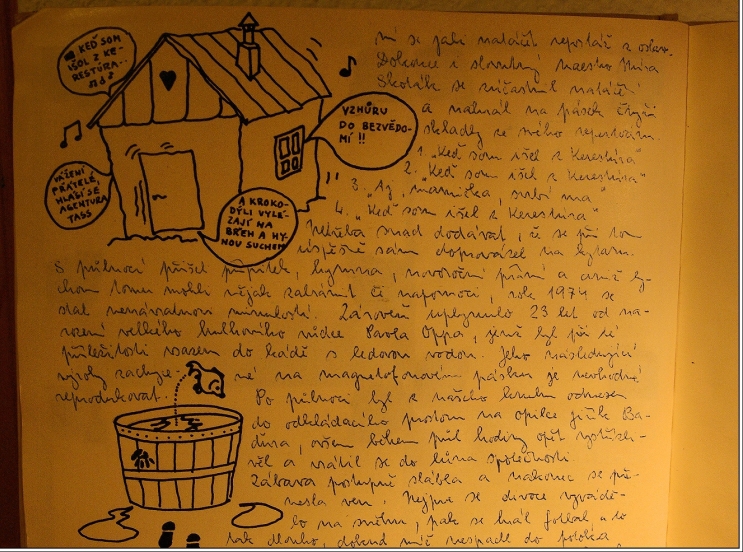 KEĎ SOM
IŠOL Z KE-
RESTÚRA..
VZHŮRU
DO BEZVĚDO-
MÍ !!
VÁŽENÍ
PŘÁTELÉ,
HLÁSÍ SE
AGENTURA
TASS
A KROKO-
DÝLI VYLÉ-
ZAJÍ NA
BŘEH A HY-
NOU SUCHEM
se jala natáčet reportáž z oslav.
Dolcovce i slovutný maestro Míra
Skoták se zúčastnil natáčení
a nahrál na pásek čtyři
skladby ze svého repertoáru.
1. „Keď som išel z Kerestúra"
2. „Keď som išel z Kerestúra"
3. „Aj, mamička, svrbí ma"
4. „Keď som išel z Kerestúra"
Netřeba snad dodávat, že se při tom
úspěšně sám doprovázel na kytaru.
S půlnocí přišel přípitek, hymna, novoroční přání a aniž by-
chom tomu mohli nějak zabránit či napomoci, rok 1974 se
stal nenávratnou minulostí. Zároveň uplynulo 23 let od na-
rození velkého hulkového vůdce Pavla Oppa, jenž byl při té
příležitosti vsazen do kádě s ledovou vodou. Jeho následující
výroky zachyce- né na magnetofonovém pásku je nevhodné
reprodukovat. Po půlnoci byl z našeho kruhu odnesen
do odkládacího prostoru na opilce Jirka Ba-
ďura, ovšem během půl hodiny opět vystřízli-
věl a vrátil se do lůna společnosti.
Zábava postupně slábla a nakonec se pře-
nesla ven. Nejprve se divoce vyvádě-
lo na sněhu, pak se hrál fotbal a to
tak dlouho, dokud míč nespadl do potoka